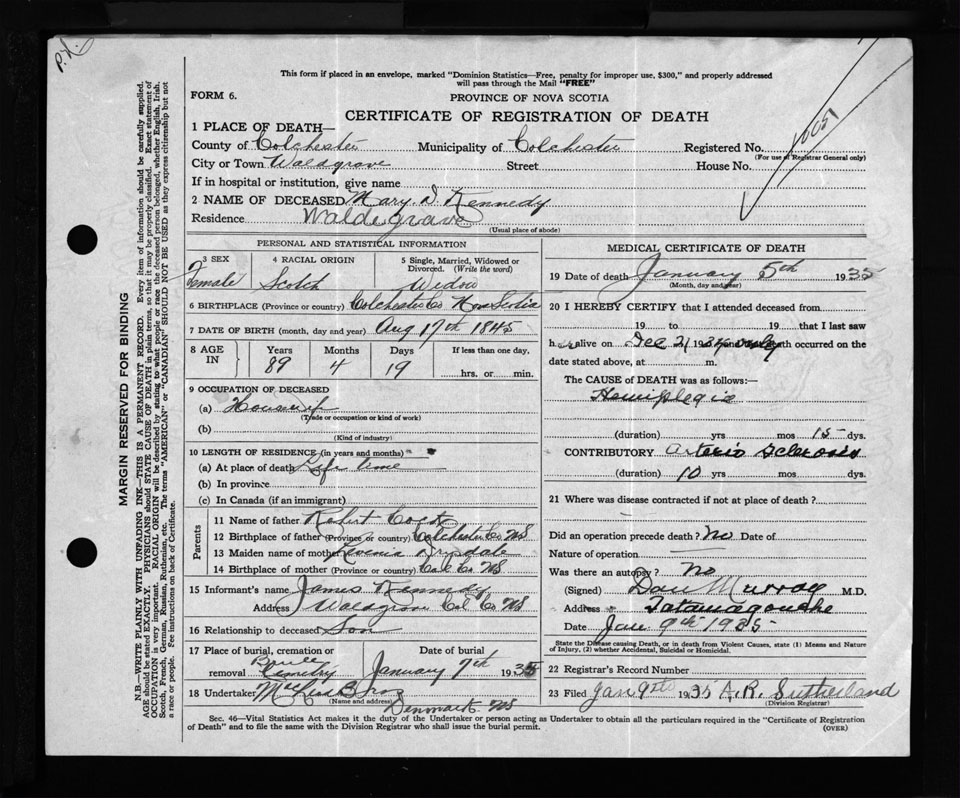 P.N.
This form if placed in an envelope, marked "Dominion Statistics—Free, penalty for improper use, $300," and properly addressed
will pass through the Mail "FREE"
FORM 6.
PROVINCE OF NOVA SCOTIA
CERTIFICATE OF REGISTRATION OF DEATH
MARGIN RESERVED FOR BINDING
N.B.—WRITE PLAINLY WITH UNFADING INK—THIS IS A PERMANENT RECORD. Every item of information should be carefully supplied.
AGE should be stated EXACTLY. PHYSICIANS should STATE CAUSE OF DEATH in plain terms, so that it may be properly classified. Exact statement of
OCCUPATION is very important. RACIAL ORIGIN will be described by stating to what people or race the deceased person belonged, whether English, Irish,
Scotch, French, German, Russian, Ruthenian, etc. The terms "AMERICAN" or "CANADIAN" SHOULD NOT BE USED as they express citizenship but not
a race or people. Fee instructions on back of Certificate.
1 PLACE OF DEATH—
County of Colchester Municipality of Colchester Registered No. 10051
(For use of Registrar General only)
City or Town Waldgrave Street House No.
If in hospital or institution, give name
2 NAME OF DECEASED Mary. D. Kennedy
Residence Waldegrave
(Usual place of abode)
PERSONAL AND STATISTICAL INFORMATION
3 SEX 4 RACIAL ORIGIN 5 Single, Married, Widowed or
Divorced. (Write the word)
Female Scotch Widow
6 BIRTHPLACE (Province or country) Colchester Co Nova Scotia
7 DATE OF BIRTH (month, day and year) Aug 17th 1845
8 AGE IN Years Months Days If less than one day,
89 4 19 hrs. or min.
9 OCCUPATION OF DECEASED
(a) Housewif
(Trade or occupation or kind of work)
(b)
(Kind of industry)
10 LENGTH OF RESIDENCE (in years and months)
(a) At place of death Life time
(b) In province
(c) In Canada (if an immigrant)
Parents
11 Name of father Robert
12 Birthplace of father (Province or country) Colchester Co NS
13 Maiden name of mother Drysdale
14 Birthplace of mother (Province or country) Col Co NS
15 Informant's name James Kennedy
Address Waldgrave Col Co NS
16 Relationship to deceased Son
17 Place of burial, cremation or Date of burial
removal Cemetry January 7th 1935
18 Undertaker
(Name and address)
Denmark NS
MEDICAL CERTIFICATE OF DEATH
19 Date of death January 5th 1935
(Month, day and year)
20 I HEREBY CERTIFY that I attended deceased from
19 to 19 that I last saw
her alive on Dec 21 1934 only and that death occurred on the
date stated above, at m.
The CAUSE OF DEATH was as follows:
Hemiplegia
(duration) yrs mos 15 dys.
CONTRIBUTORY Arterio Sclerosis
(duration) 10 yrs mos dys.
21 Where was disease contracted if not at place of death?
Did an operation precede death? No Date of
Nature of operation
Was there an autopsy? No
(Signed) Dan Murray M.D.
Address Tatamagouche
Date Jan 9th 1935
State the Disease causing Death, or in death from Violent Causes, state (1) Means and Nature
of Injury, (2) whether Accidental, Suicidal or Homicidal.
22 Registrar's Record Number
23 Filed Jan 9th 1935 A.R. Sutherland
(Division Registrar)
Sec. 46—Vital Statistics Act makes it the duty of the Undertaker or person acting as Undertaker to obtain all the particulars required in the "Certificate of Registration
of Death" and to file the same with the Division Registrar who shall issue the burial permit.
(OVER)